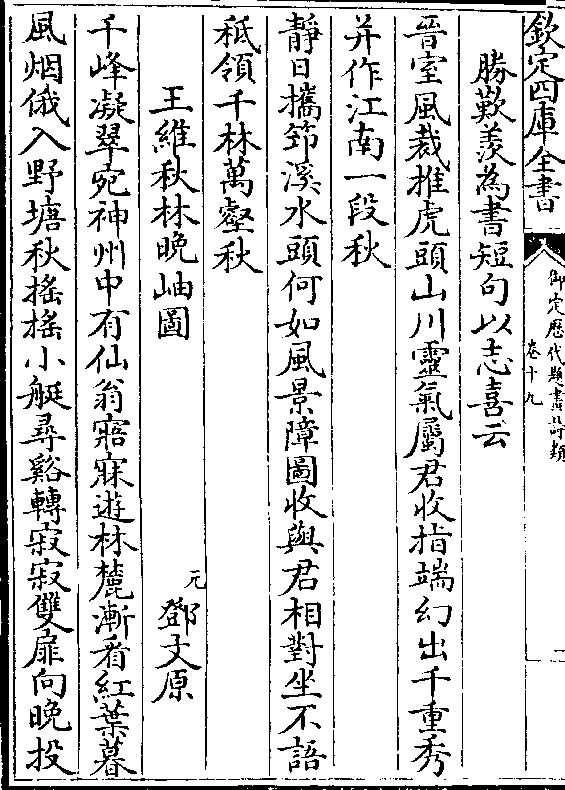 欽定四庫全書
御定歷代題畫詩類
卷十九
勝歎羨為書短句以志喜云
晉室風裁推虎頭山川靈氣屬君收指端幻出千重秀
并作江南一段秋
靜日攜筇溪水頭何如風景障圖收與君相對坐不語
秪領千林萬壑秋
王維秋林晚岫圖
元 鄧文原
千峰凝翠宛神州中有仙翁寤寐遊林麓漸看紅葉暮
風烟俄入野塘秋搖搖小艇尋谿轉寂寂雙扉向晚投